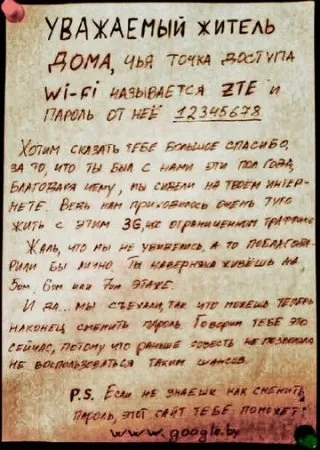 УВАЖАЕМЫЙ ЖИТЕЛЬ
ДОМА, ЧЬЯ ТОЧКА ДОСТУПА
Wi-Fi НАЗЫВАЕТСЯ ZTE И
ПАРОЛЬ ОТ НЕЁ 12345678
ХОТИМ СКАЗАТЬ ТЕБЕ БОЛЬШОЕ СПАСИБО,
ЗА ТО, ЧТО ТЫ БЫЛ С НАМИ ЭТИ ПОЛ ГОДА,
БЛАГОДАРЯ ЧЕМУ, МЫ СИДЕЛИ НА ТВОЕМ ИНТЕР-
НЕТЕ. ВЕДЬ НАМ ПРИХОДИЛОСЬ ОЧЕНЬ ТУГО
ЖИТЬ С ЭТИМ 3G, ОГРАНИЧЕННОМ ТРАФФИКЕ
ЖАЛЬ, ЧТО МЫ НЕ УВИДЕЛИСЬ, А ТО ПОБЛАГОДА-
РИЛИ БЫ ЛИЧНО. ТЫ НАВЕРНЯКА ЖИВЁШЬ НА
5ом, 6ом ИЛИ 7ом ЭТАЖЕ.
И ДА... МЫ СЪЕХАЛИ, ТАК ЧТО МОЖЕШЬ ТЕПЕРЬ
НАКОНЕЦ СМЕНИТЬ ПАРОЛЬ. ГОВОРИМ ТЕБЕ ЭТО
СЕЙЧАС, ПОТОМУ ЧТО РАНЬШЕ СОВЕСТЬ НЕ ПОЗВОЛЯЛА
НЕ ВОСПОЛЬЗОВАТЬСЯ ТАКИМ ШАНСОМ.
P.S. ЕСЛИ НЕ ЗНАЕШЬ КАК СМЕНИТЬ
ПАРОЛЬ, ЭТОТ САЙТ ТЕБЕ ПОМОЖЕТ:
www.google.by